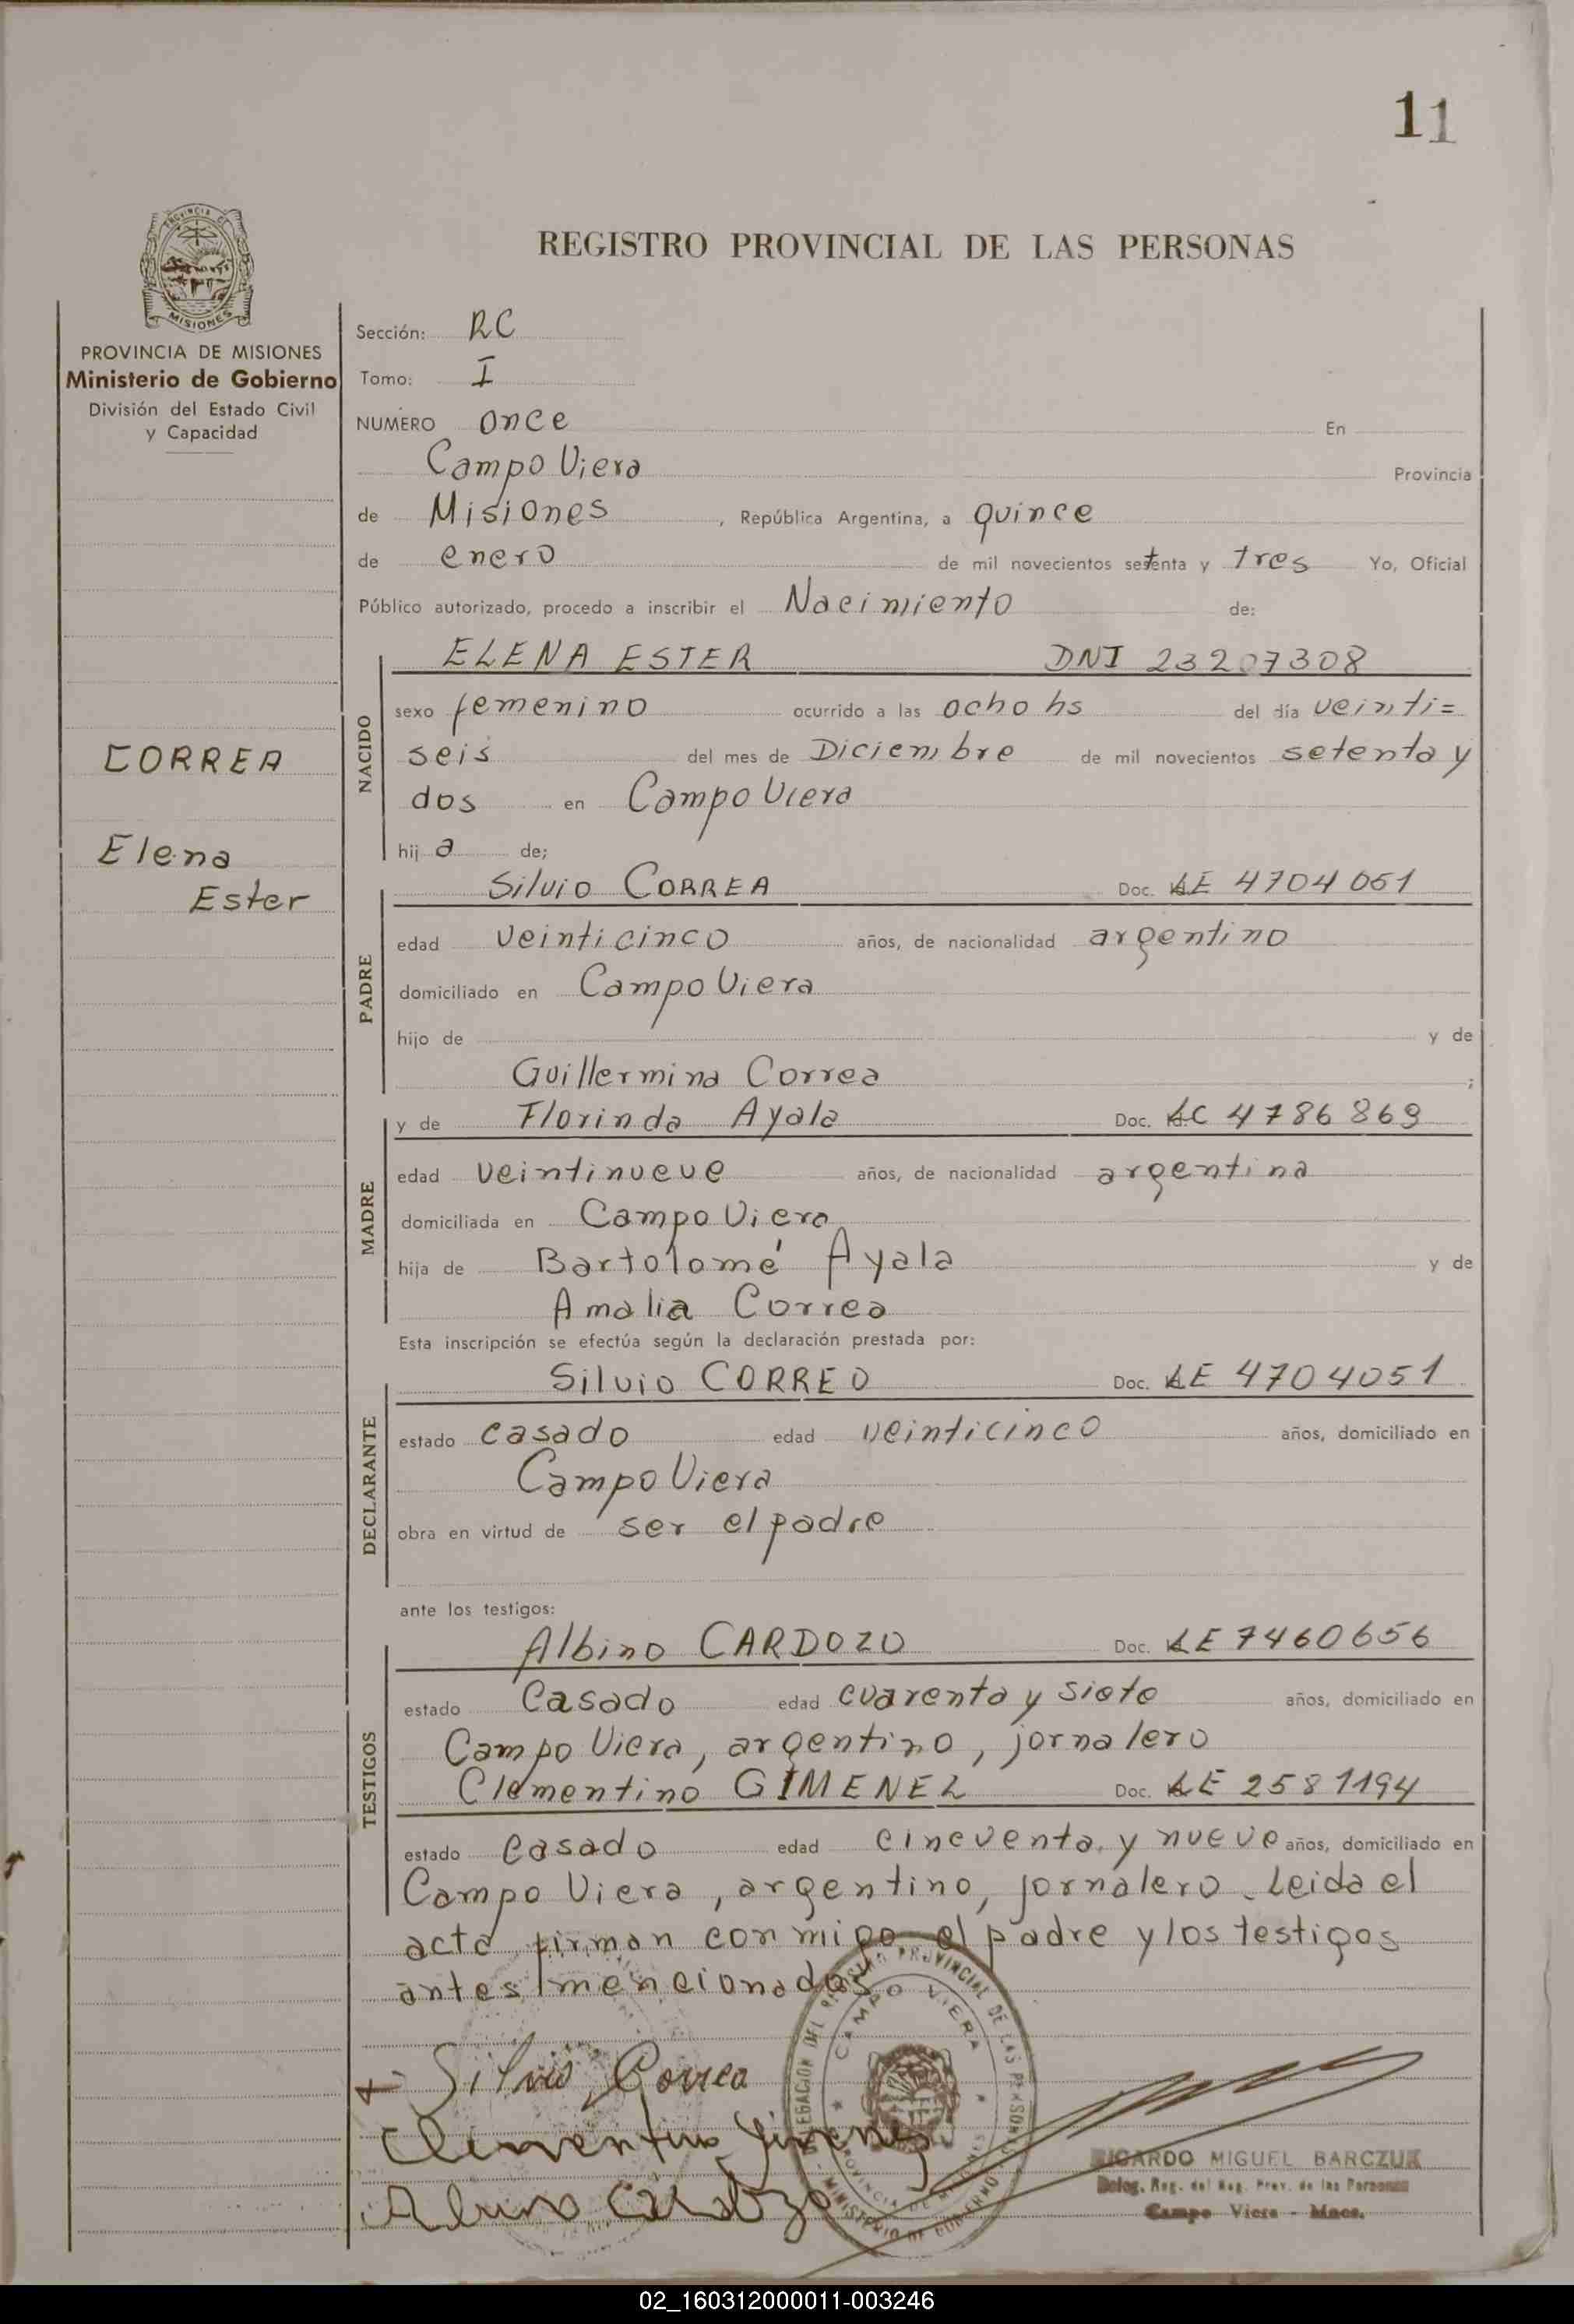 11
PROVINCIA DE
MISIONES
REGISTRO PROVINCIAL DE LAS PERSONAS
PROVINCIA DE MISIONES
Ministerio de Gobierno
División del Estado Civil
y Capacidad
CORREA
Elena
Ester
Sección: RC
Tomo: I
NUMERO once En
Campo Viera Provincia
de Misiones , República Argentina, a quince
de enero de mil novecientos setenta y tres Yo, Oficial
Público autorizado, procedo a inscribir el Nacimiento de:
NACIDO
ELENA ESTER DNI 23207308
sexo femenino ocurrido a las ocho hs del día veinti=
seis del mes de Diciembre de mil novecientos setenta y
dos en Campo Viera
hij a de;
PADRE
Silvio CORREA Doc. LE 4704051
edad veinticinco años, de nacionalidad argentino
domiciliado en Campo Viera
hijo de y de
Guillermina Correa ;
MADRE
y de Florinda Ayala Doc. LC 4786869
edad veintinueve años, de nacionalidad argentina
domiciliada en Campo Viera
hija de Bartolomé Ayala y de
Amalia Correa
Esta inscripción se efectúa según la declaración prestada por:
DECLARANTE
Silvio CORREO Doc. LE 4704051
estado casado edad veinticinco años, domiciliado en
Campo Viera
obra en virtud de ser el padre
ante los testigos:
TESTIGOS
Albino CARDOZO Doc. LE 7460656
estado Casado edad cuarenta y siete años, domiciliado en
Campo Viera, argentino, jornalero
Clementino GIMENEZ Doc. LE 2581194
estado Casado edad cincuenta y nueve años, domiciliado en
Campo Viera, argentino, jornalero. Leida el
acta firman conmigo el padre y los testigos
antes mencionados
DELEGACION DEL REGISTRO PROVINCIAL DE LAS PERSONAS
CAMPO VIERA
PROVINCIA DE MISIONES
MINISTERIO DE GOBIERNO
Silvio Correa
Clementino Jimenes
Albino Cardozo
RICARDO MIGUEL BARCZUK
Deleg. Reg. del Reg. Prov. de las Personas
Campo Viera - Mnes.
02_160312000011-003246